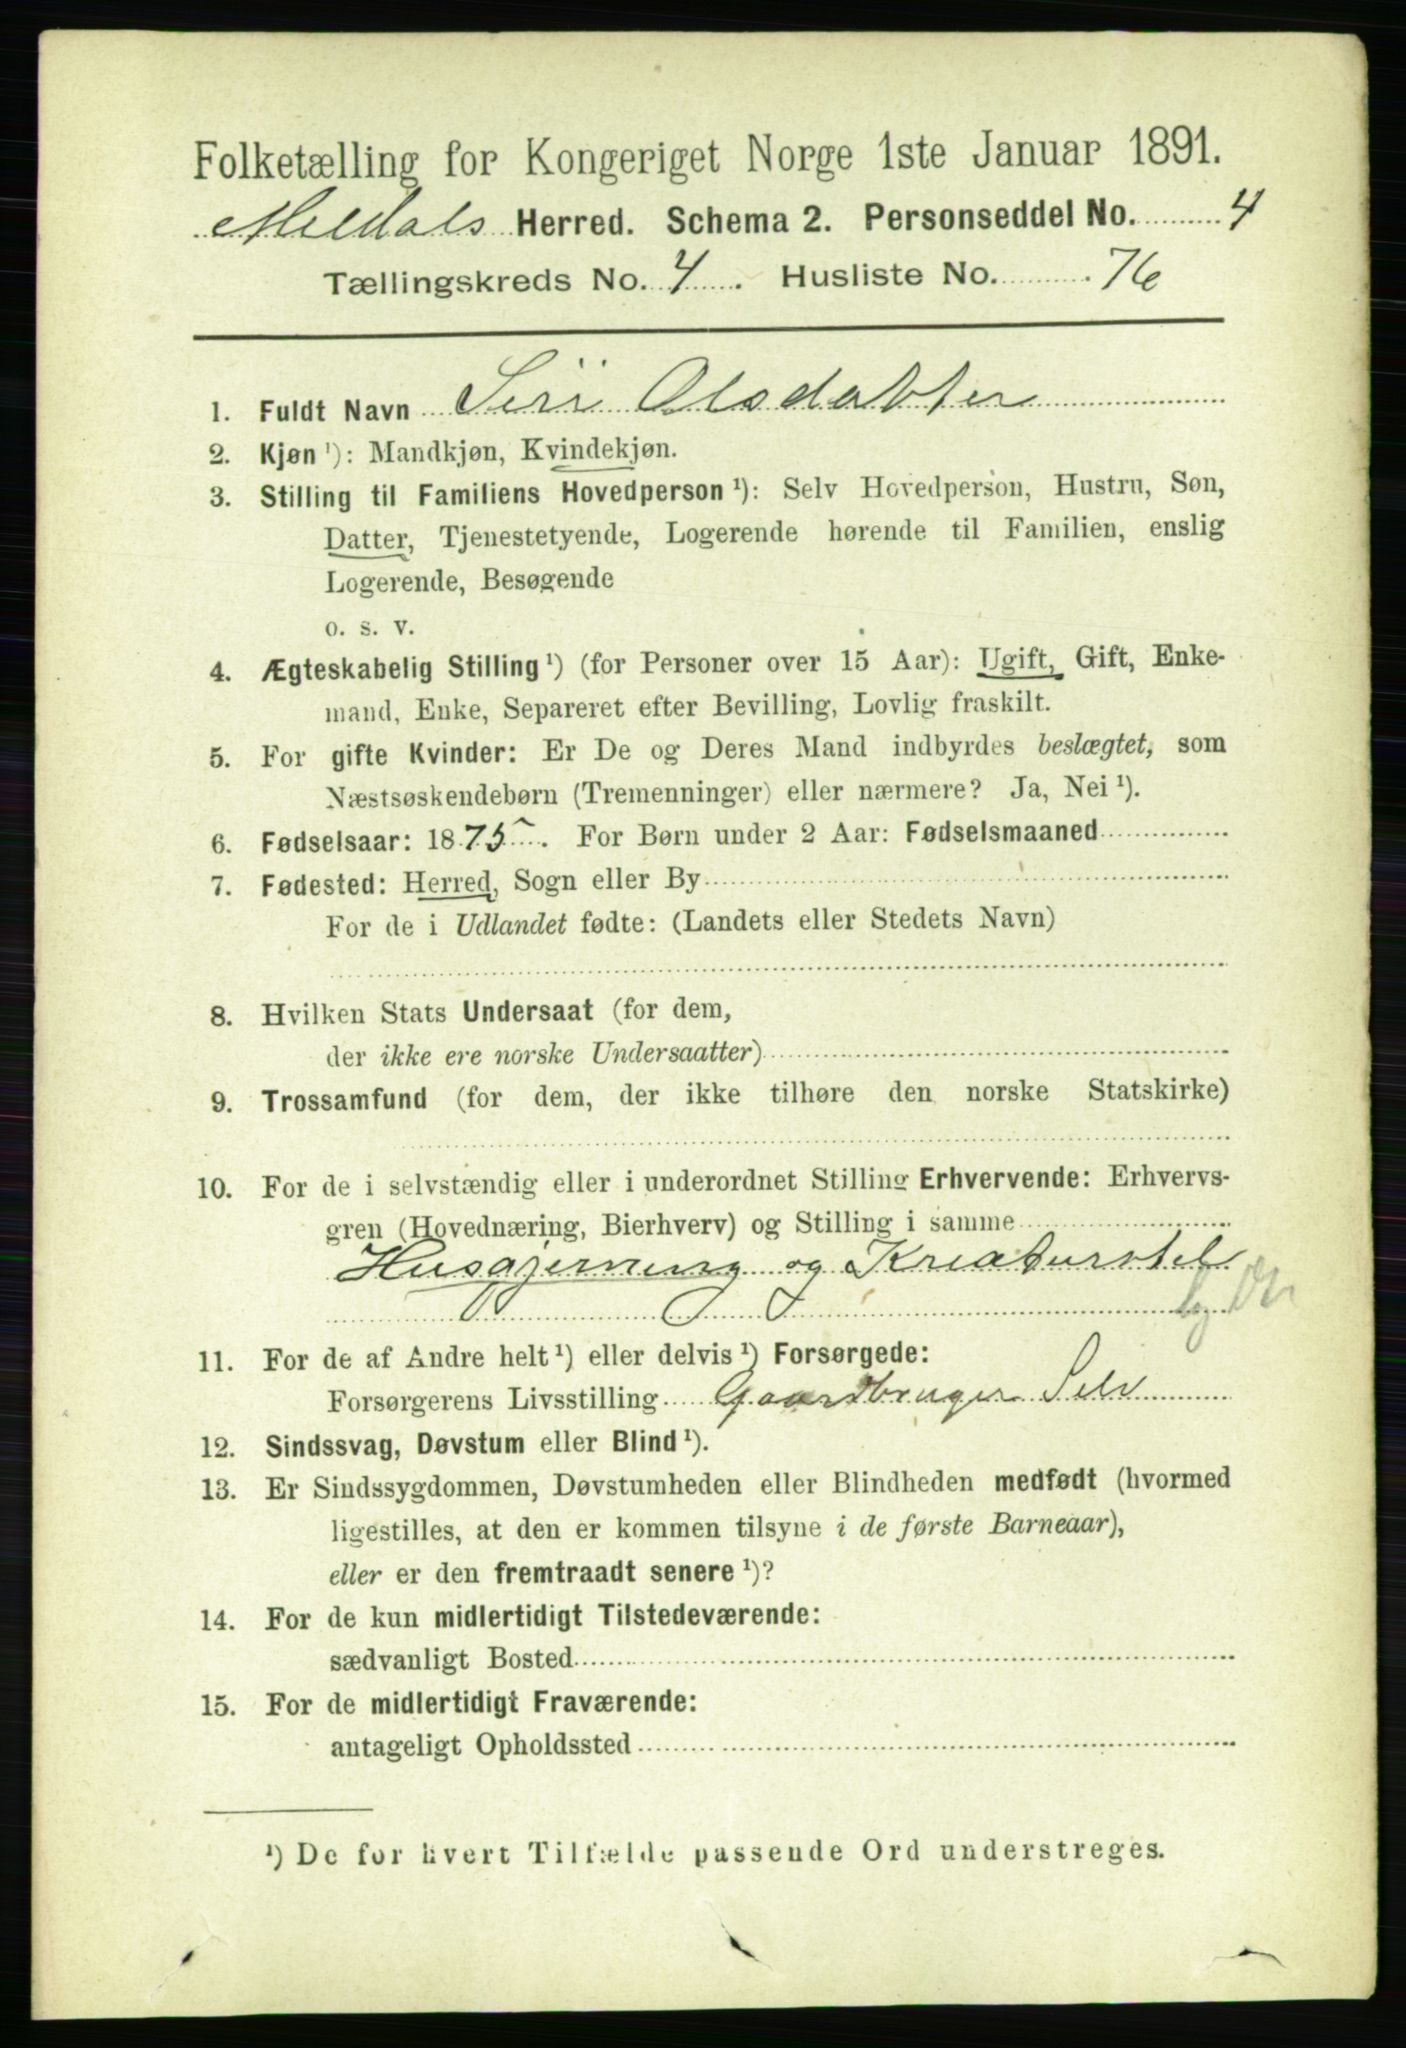 Folketælling for Kongeriget Norge 1ste Januar 1891.
Meldals Herred. Schema 2. Personseddel No. 4
Tællingskreds No. 4. Husliste No. 76
1. Fuldt Navn Siri Olsdatter
2. Kjøn ¹): Mandkjøn, Kvindekjøn.
3. Stilling til Familiens Hovedperson ¹): Selv Hovedperson, Hustru, Søn,
Datter, Tjenestetyende, Logerende hørende til Familien, enslig
Logerende, Besøgende
o. s. v.
4. Ægteskabelig Stilling ¹) (for Personer over 15 Aar): Ugift, Gift, Enke-
mand, Enke, Separeret efter Bevilling, Lovlig fraskilt.
5. For gifte Kvinder: Er De og Deres Mand indbyrdes beslægtet, som
Næstsøskendebørn (Tremenninger) eller nærmere? Ja, Nei ¹).
6. Fødselsaar: 1875. For Børn under 2 Aar: Fødselsmaaned
7. Fødested: Herred, Sogn eller By
For de i Udlandet fødte: (Landets eller Stedets Navn)
8. Hvilken Stats Undersaat (for dem,
der ikke ere norske Undersaatter)
9. Trossamfund (for dem, der ikke tilhøre den norske Statskirke)
10. For de i selvstændig eller i underordnet Stilling Erhvervende: Erhvervs-
gren (Hovednæring, Bierhverv) og Stilling i samme
Husgjerning og Kreaturstel
11. For de af Andre helt ¹) eller delvis ¹) Forsørgede:
Forsørgerens Livsstilling Gaardbruger Selv
12. Sindssvag, Døvstum eller Blind ¹).
13. Er Sindssygdommen, Døvstumheden eller Blindheden medfødt (hvormed
ligestilles, at den er kommen tilsyne i de første Barneaar),
eller er den fremtraadt senere ¹)?
14. For de kun midlertidigt Tilstedeværende:
sædvanligt Bosted
15. For de midlertidigt Fraværende:
antageligt Opholdssted
¹) De for hvert Tilfælde passende Ord understreges.